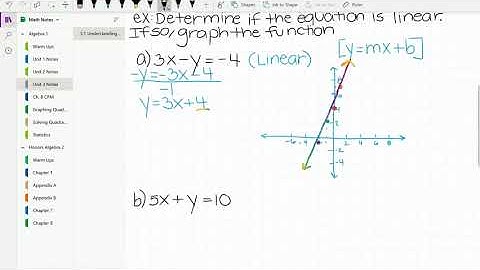 Math Notes
Algebra 1
Warm Ups
Unit 1 Notes
Unit 2 Notes
Unit 3 Notes
Ch. 8 CPM
Graphing Quad...
Solving Quadra...
Statistics
Honors Algebra 2
Warm Ups
Chapter 1
Appendix A
Appendix B
Chapter 7
Chapter 8
ex: Determine if the equation is linear.
If so, graph the function
a) 3x-y=-4 (Linear) [y=mx+b]
-y=-3x-4
-1
y=3x+4
-6 -4 2 4 6 8
-2
-4
b) 5x+y=10